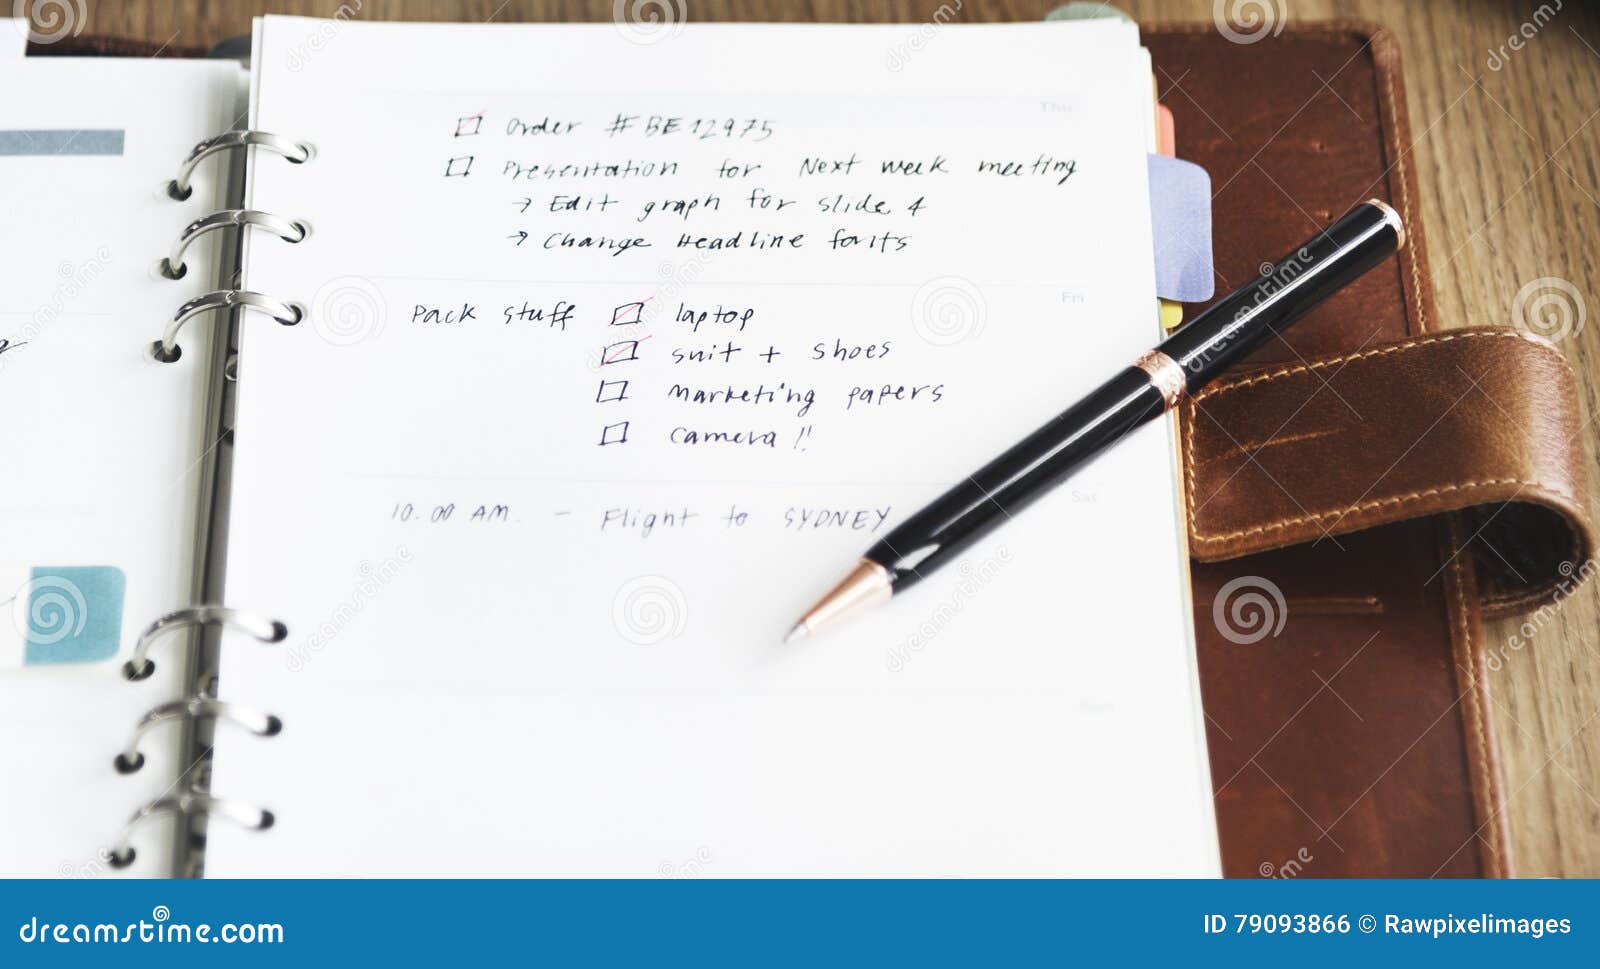 Thu
☑ Order #BE12975
☐ Presentation for Next week meeting
→ Edit graph for slide 4
→ Change Headline fonts
Fri
Pack stuff ☑ laptop
☑ suit + shoes
☐ Marketing papers
☐ camera !!
Sat
10.00 AM. - Flight to SYDNEY
dreamstime.com
ID 79093866 © Rawpixelimages